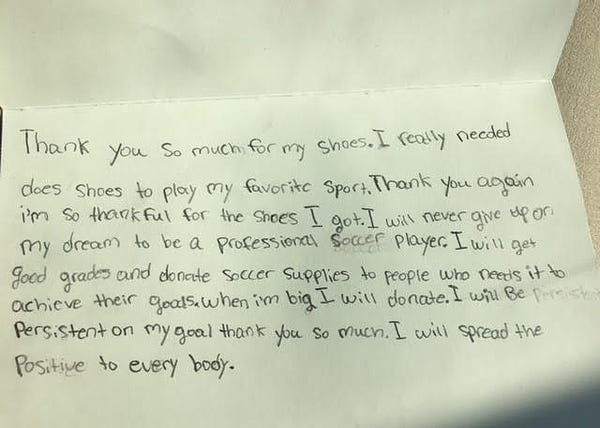 Thank you so much for my shoes. I really needed
does shoes to play my favorite sport. Thank you again
i'm so thankful for the shoes I got. I will never give up on
my dream to be a professional soccer player. I will get
good grades and donate soccer supplies to people who needs it to
achieve their goals. when i'm big I will donate. I will Be Persistent
Persistent on my goal thank you so much. I will spread the
Positive to every body.